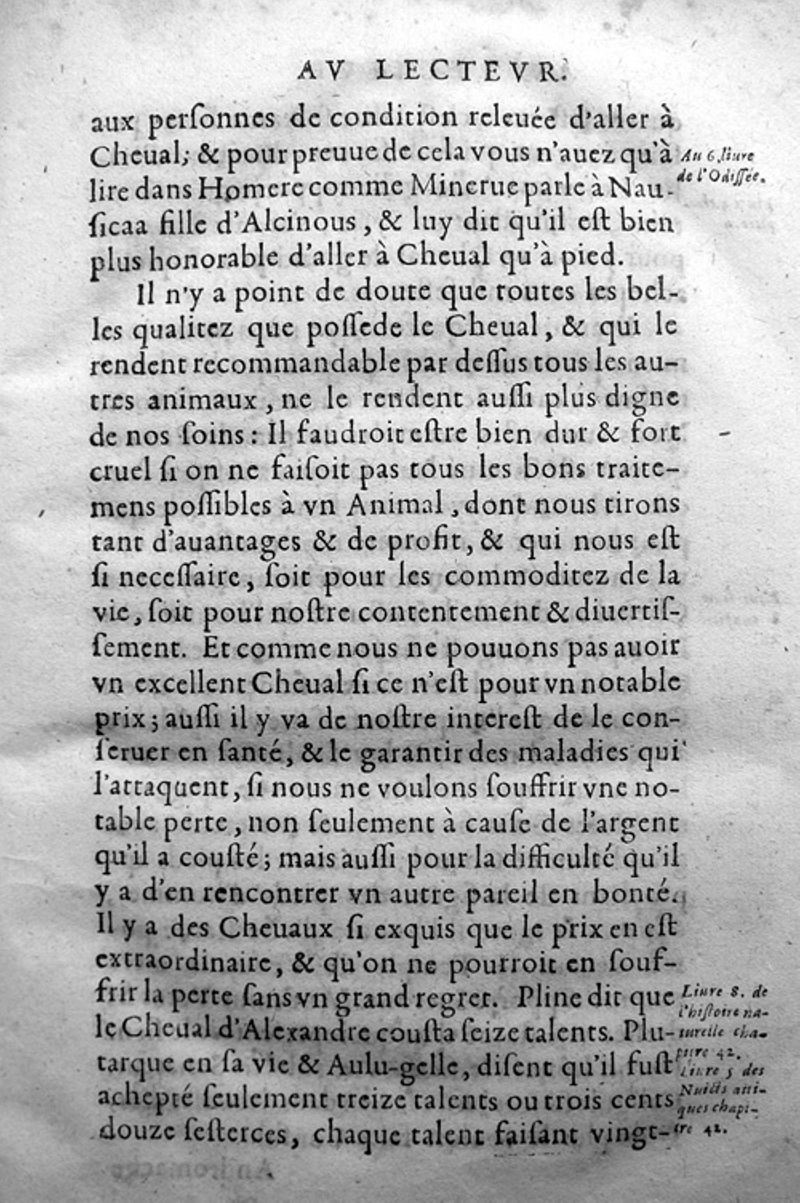 AV LECTEVR.
aux perſonnes de condition releuée d'aller à
Cheual; & pour preuue de cela vous n'auez qu'à
lire dans Homere comme Minerue parle à Nau-
ſicaa fille d'Alcinous, & luy dit qu'il eſt bien
plus honorable d'aller à Cheual qu'à pied.
Au 6. liure
de l'Odiſſée.
Il n'y a point de doute que toutes les bel-
les qualitez que poſſede le Cheual, & qui le
rendent recommandable par deſſus tous les au-
tres animaux, ne le rendent auſſi plus digne
de nos ſoins: Il faudroit eſtre bien dur & fort
cruel ſi on ne faiſoit pas tous les bons traite-
mens poſſibles à vn Animal, dont nous tirons
tant d'auantages & de profit, & qui nous eſt
ſi neceſſaire, ſoit pour les commoditez de la
vie, ſoit pour noſtre contentement & diuertiſ-
ſement. Et comme nous ne pouuons pas auoir
vn excellent Cheual ſi ce n'eſt pour vn notable
prix; auſſi il y va de noſtre intereſt de le con-
ſeruer en ſanté, & le garantir des maladies qui
l'attaquent, ſi nous ne voulons ſouffrir vne no-
table perte, non ſeulement à cauſe de l'argent
qu'il a couſté; mais auſſi pour la difficulté qu'il
y a d'en rencontrer vn autre pareil en bonté.
Il y a des Cheuaux ſi exquis que le prix en eſt
extraordinaire, & qu'on ne pourroit en ſouf-
frir la perte ſans vn grand regret. Pline dit que
le Cheual d'Alexandre couſta ſeize talents. Plu-
tarque en ſa vie & Aulu-gelle, diſent qu'il fuſt
achepté ſeulement treize talents ou trois cents
douze ſeſterces, chaque talent faiſant vingt-
Liure 8. de
l'hiſtoire na-
turelle cha-
pitre 42.
Liure 5 des
Nuicts atti-
ques chapi-
tre 42.